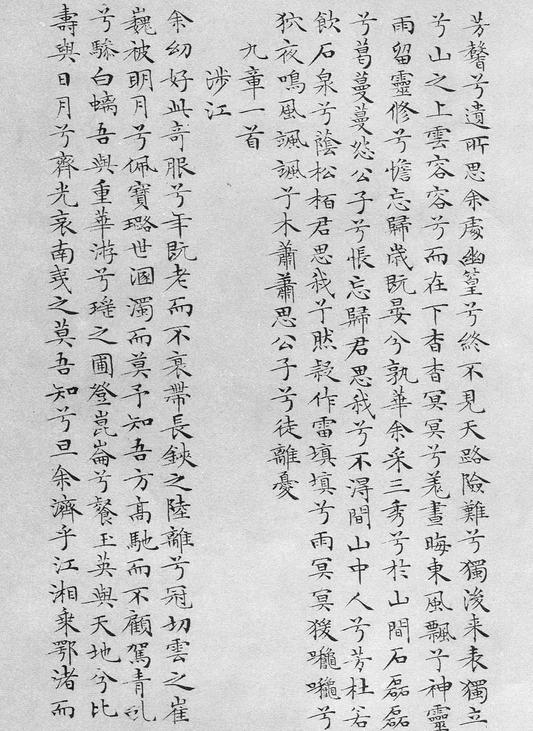 芳馨兮遺所思余處幽篁兮終不見天路險難兮獨後来表獨立
兮山之上雲容容兮而在下杳杳冥冥兮羌晝晦東風飄兮神靈
雨留靈修兮憺忘歸歳既晏兮孰華余采三秀兮於山間石磊磊
兮葛蔓蔓怨公子兮悵忘歸君思我兮不得間山中人兮芳杜若
飲石泉兮蔭松栢君思我兮然疑作雷填填兮雨冥冥猨啾啾兮
狖夜鳴風颯颯兮木蕭蕭思公子兮徒離憂
九章一首
涉江
余幼好此奇服兮年既老而不衰帶長鋏之陸離兮冠切雲之崔
巍被明月兮佩寶璐世溷濁而莫予知吾方髙馳而不顧駕青虬
兮驂白螭吾與重華游兮瑤之圃登崑崙兮餐玉英與天地兮比
壽與日月兮齊光哀南夷之莫吾知兮旦余濟乎江湘乗鄂渚而